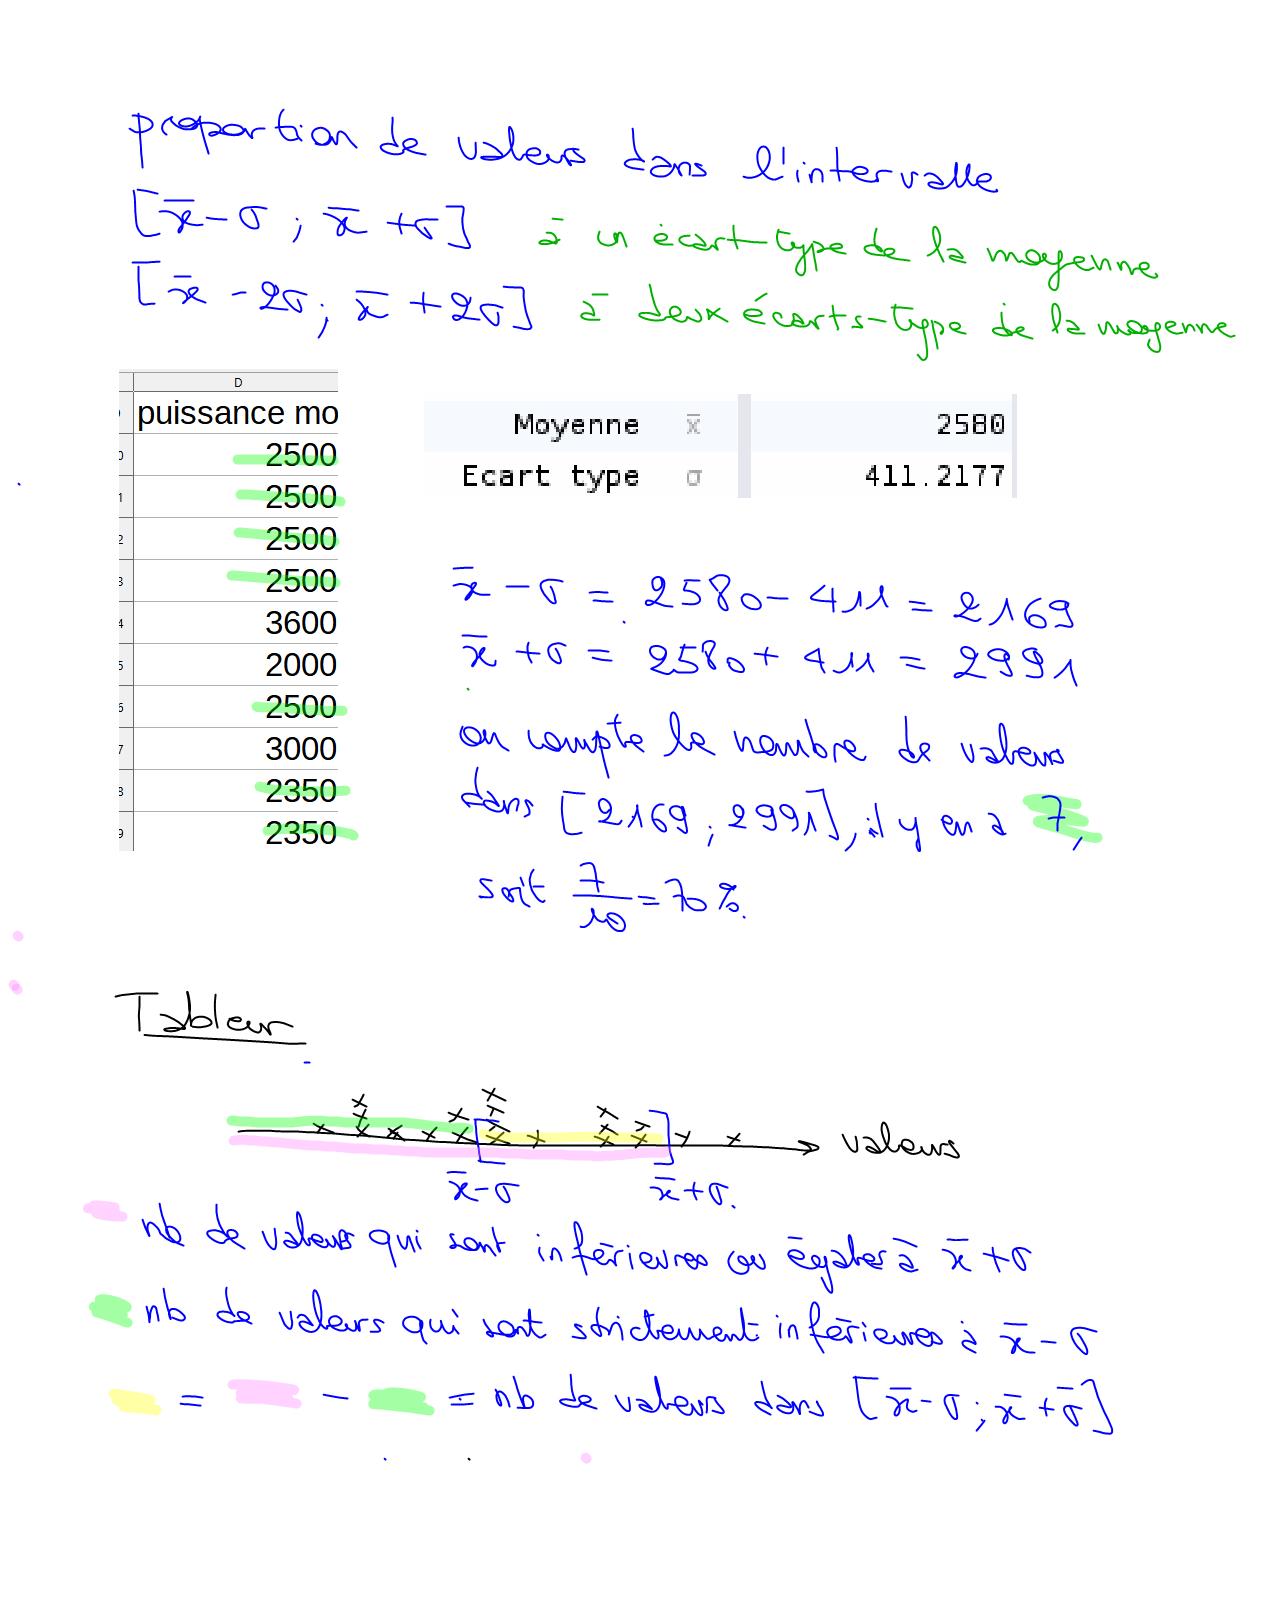 proportion de valeurs dans l'intervalle
[x̄-σ ; x̄+σ] à un écart-type de la moyenne
[x̄-2σ; x̄+2σ] à deux écarts-type de la moyenne
D
puissance mo
0 2500
1 2500
2 2500
3 2500
4 3600
5 2000
6 2500
7 3000
8 2350
9 2350
Moyenne x̄ 2580
Ecart type σ 411.2177
x̄-σ = 2580-411 = 2169
x̄+σ = 2580+411 = 2991
on compte le nombre de valeurs
dans [2169; 2991], il y en a 7,
soit 7/10 = 70%.
Tableur
valeurs
x̄-σ x̄+σ.
nb de valeurs qui sont inférieures ou égales à x̄+σ
nb de valeurs qui sont strictement inférieures à x̄-σ
= - = nb de valeurs dans [x̄-σ; x̄+σ̄]